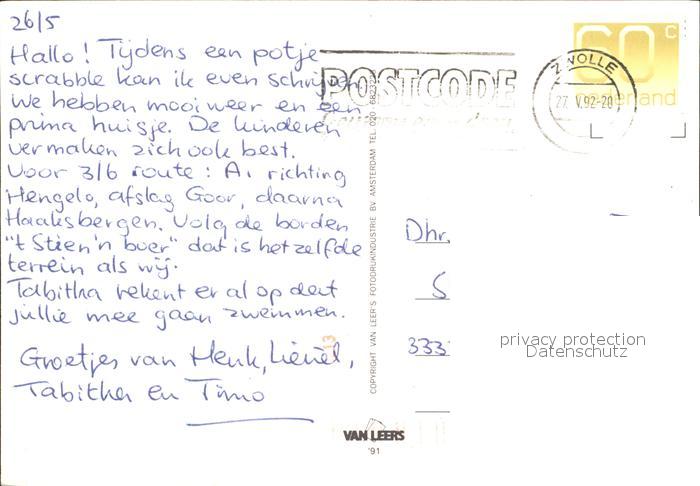 26/5
Hallo! Tijdens een potje
scrabble kan ik even schrijven
we hebben mooi weer en een
prima huisje. De kinderen
vermaken zich ook best.
Voor 3/6 route: A1 richting
Hengelo, afslag Goor, daarna
Haaksbergen. Volg de borden
"'t Stien'n boer" dat is hetzelfde
terrein als wij.
Tabitha rekent er al op dat
jullie mee gaan zwemmen.
Groetjes van Henk, Liënel,
Tabitha en Timo
POSTCODE
ZWOLLE
27. V.92-20
60 c
nederland
COPYRIGHT VAN LEER'S FOTODRUKINDUSTRIE BV. AMSTERDAM TEL. 020
Dhr.
S
333
privacy protection
Datenschutz
VAN LEERS
'91